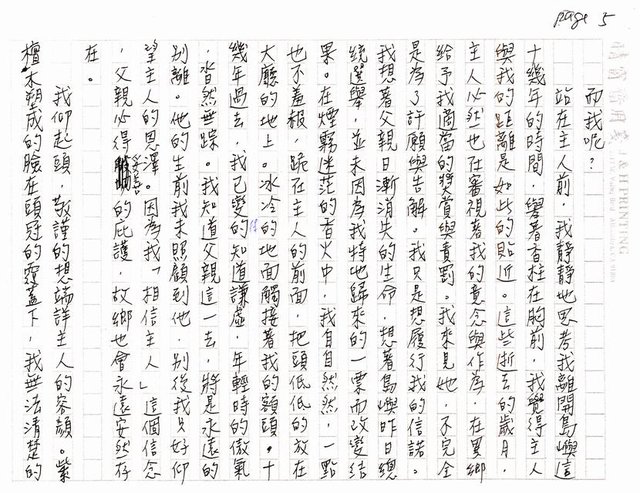 page 5
而我呢？
站在主人前，我靜靜地思考我離開島嶼這
十幾年的時間，舉著香柱在胸前，我覺得主人
與我的距離是如此的貼近。這些逝去的歲月，
主人必然也在審視著我的意念與作為，在異鄉
給予我適當的獎賞與責罰。我來見她，不完全
是為了許願與告解。我只是想履行我的信諾。
我想著父親日漸消失的生命，想著島嶼昨日總
統選舉，並未因為我特地歸來的一票而改變結
果。在煙霧迷茫的香火中，我自自然然，一點
也不羞赧，跪在主人的前面，把頭低低的放在
大廳的地上。冰冷的地面觸接著我的額頭。十
幾年過去，我已變的知道謙虛，年輕時的傲氣
，杳然無蹤。我知道父親這一去，將是永遠的
別離。他的生前我未照顧到他，別後我只好仰
望主人的恩澤。因為我「相信主人」這個信念
，父親必得妥善的庇護，故鄉也會永遠安然存
在。
我仰起頭，敬謹的想端詳主人的容顏。紫
檀木塑成的臉在頭冠的覆蓋下，我無法清楚的
J & H PRINTING